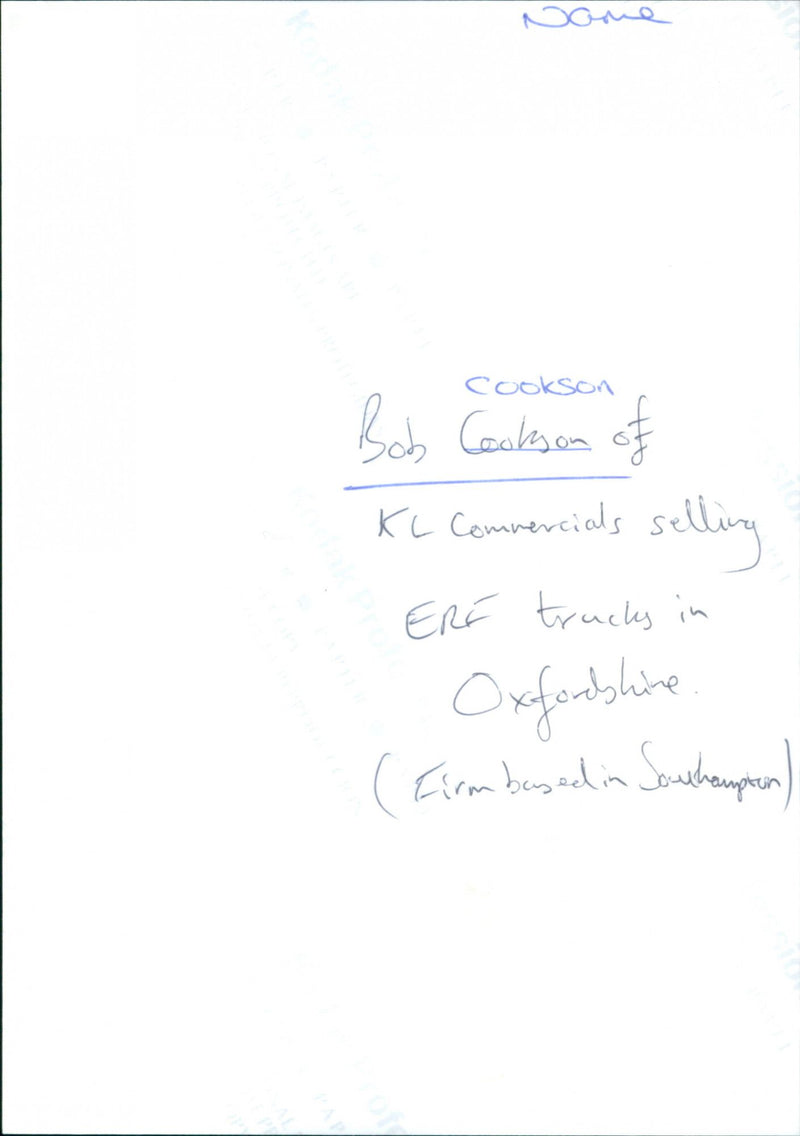 Name
Cookson
Bob Cookson of
KL Commercials selling
ERF trucks in
Oxfordshire.
(Firm based in Southampton)